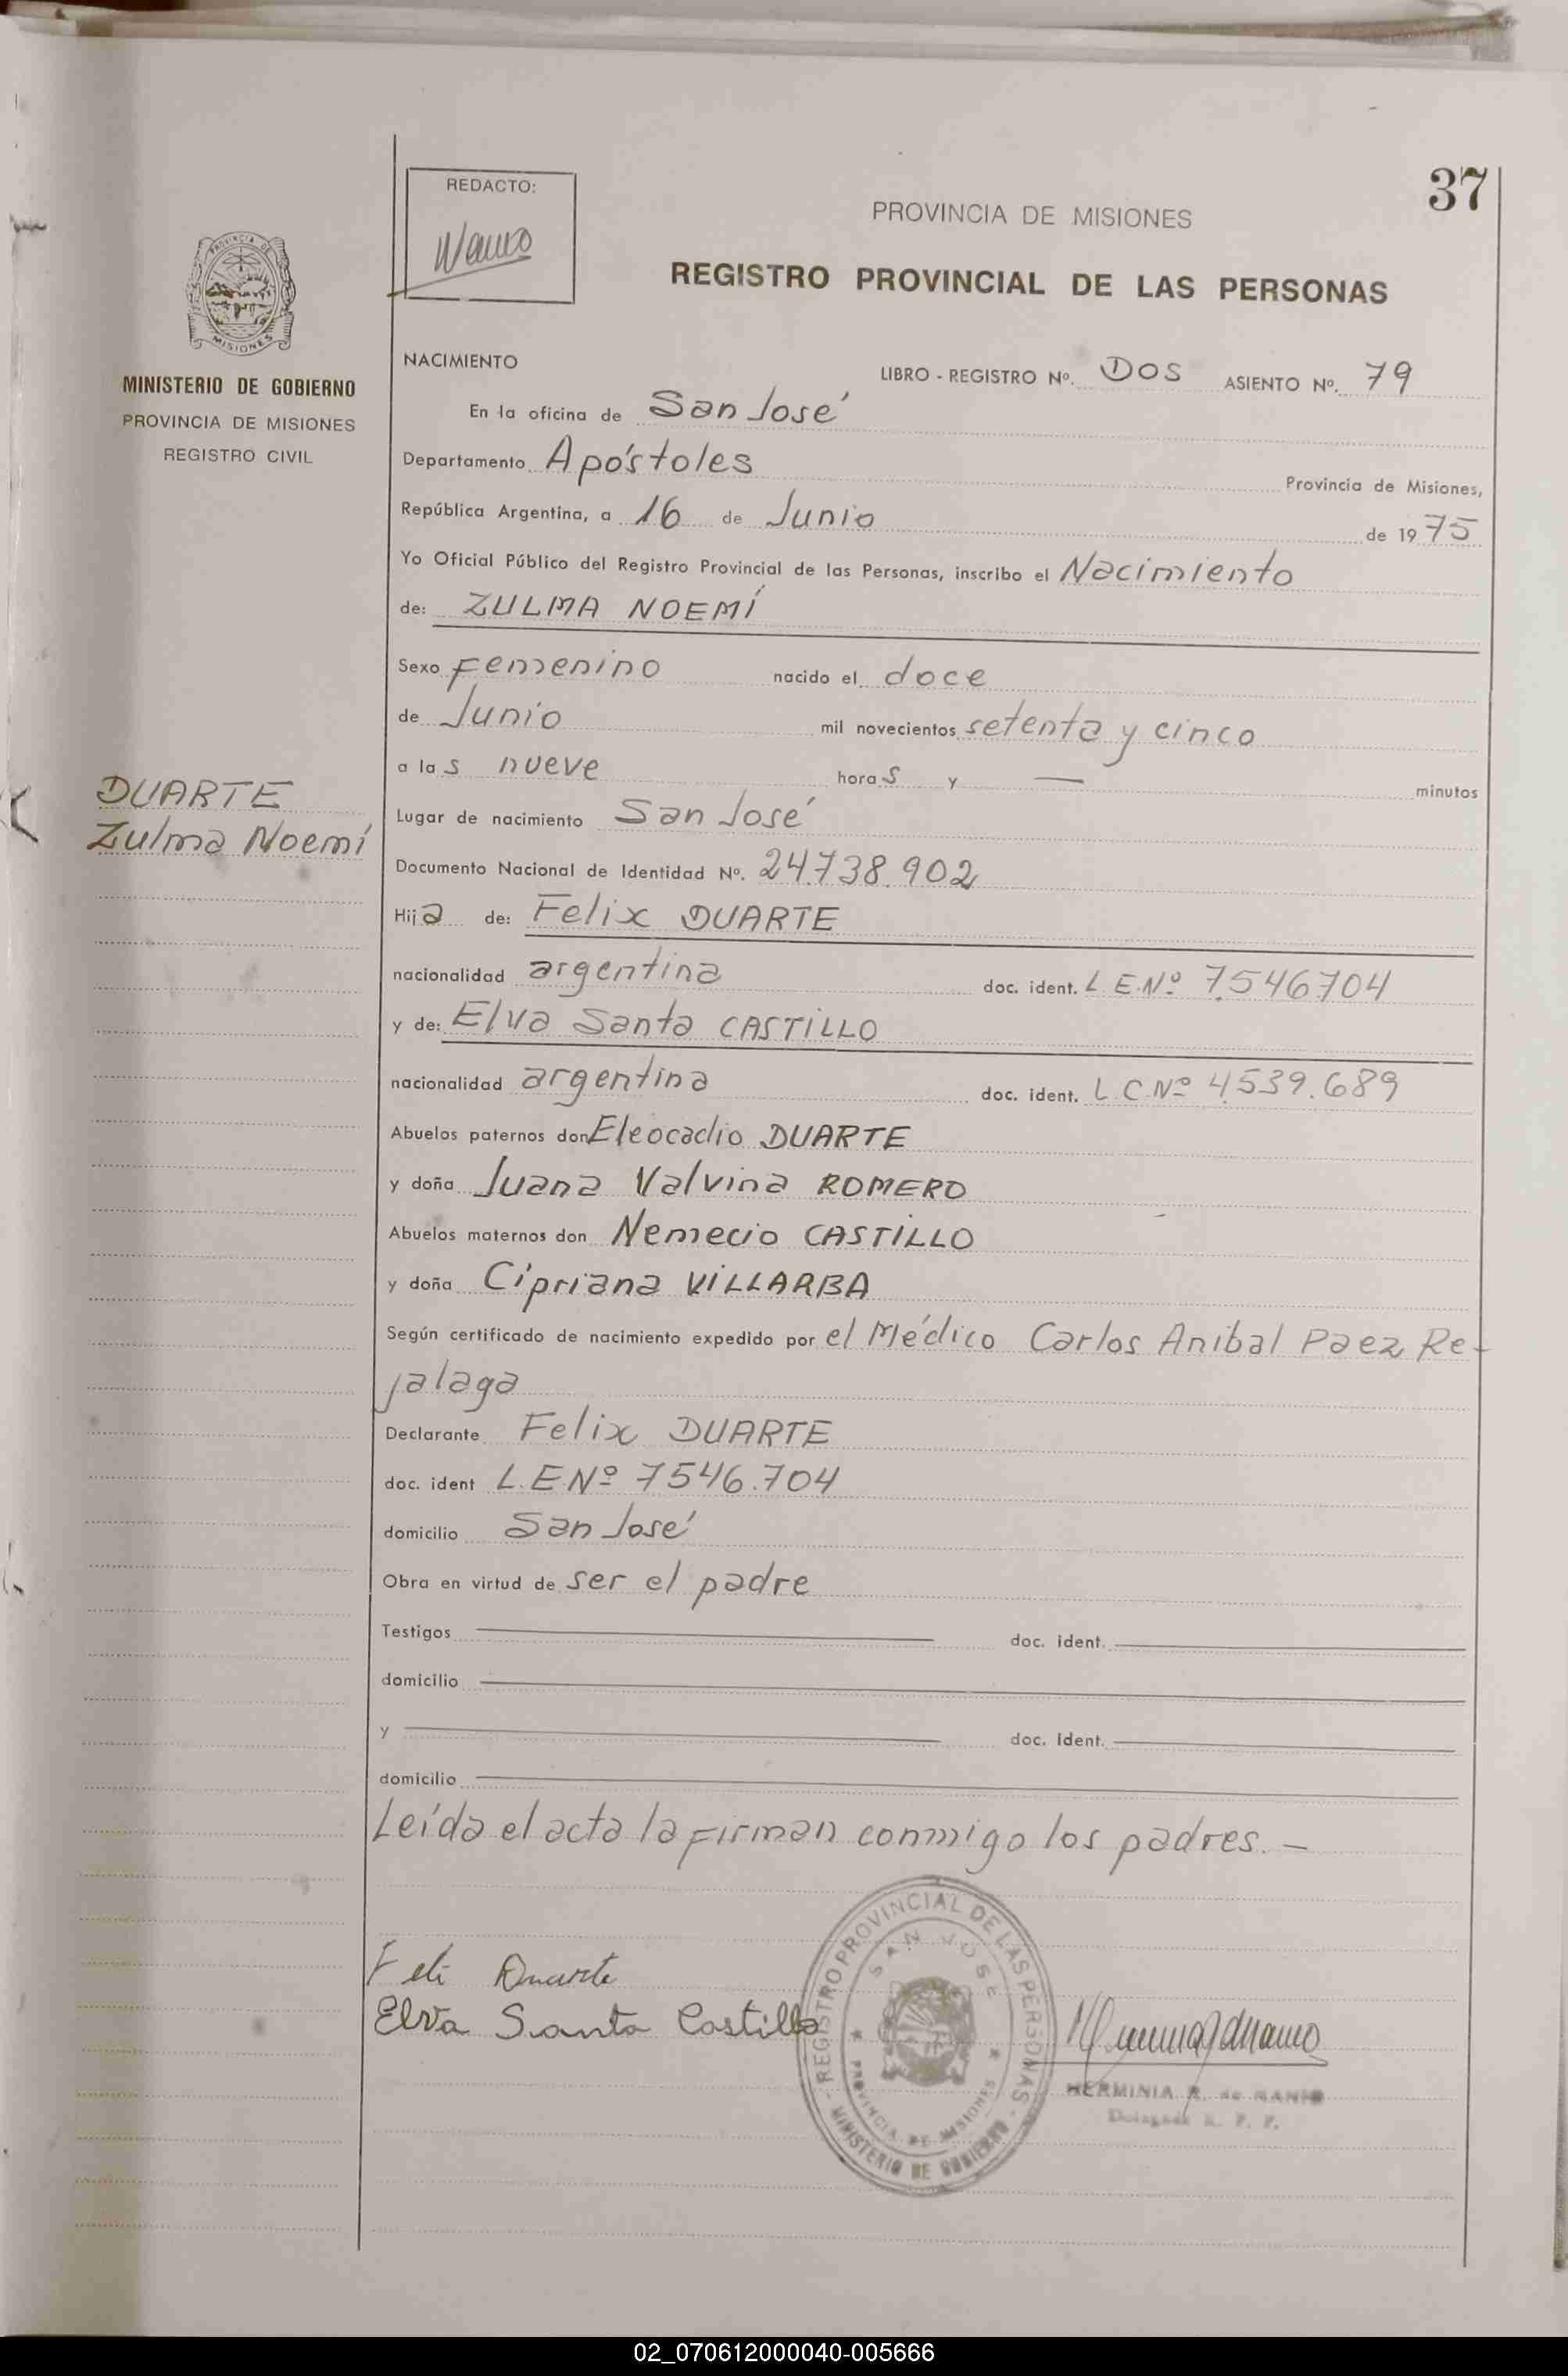 37
REDACTO:
PROVINCIA DE MISIONES
REGISTRO PROVINCIAL DE LAS PERSONAS
MISIONES
MINISTERIO DE GOBIERNO
PROVINCIA DE MISIONES
REGISTRO CIVIL
NACIMIENTO
LIBRO - REGISTRO Nº. DOS ASIENTO Nº. 79
En la oficina de San José
Departamento Apóstoles Provincia de Misiones,
República Argentina, a 16 de Junio de 1975
Yo Oficial Público del Registro Provincial de las Personas, inscribo el Nacimiento
de: ZULMA NOEMÍ
Sexo Femenino nacido el doce
de Junio mil novecientos setenta y cinco
a las nueve horas y — minutos
DUARTE
Zulma Noemí
Lugar de nacimiento San José
Documento Nacional de Identidad Nº. 24.738.902
Hija de: Felix DUARTE
nacionalidad argentina doc. ident. L.E.Nº 7.546.704
y de: Elva Santa CASTiLLO
nacionalidad argentina doc. ident. L.C.Nº 4.539.689
Abuelos paternos don Eleocadio DUARTE
y doña Juana Valvina ROMERO
Abuelos maternos don Nemecio CASTiLLO
y doña Cipriana ViLLARBA
Según certificado de nacimiento expedido por el Médico Carlos Anibal Paez Re-
jalaga
Declarante Felix DUARTE
doc. ident L.E.Nº 7546.704
domicilio San José
Obra en virtud de ser el padre
Testigos doc. ident.
domicilio
y doc. ident.
domicilio
Leída el acta la firman conmigo los padres. —
Feli Duarte
Elva Santa Castillo
REGISTRO PROVINCIAL DE LAS PERSONAS
SAN JOSE
PROVINCIA DE MISIONES
MINISTERIO DE GOBIERNO
HERMINIA R. de
02_070612000040-005666